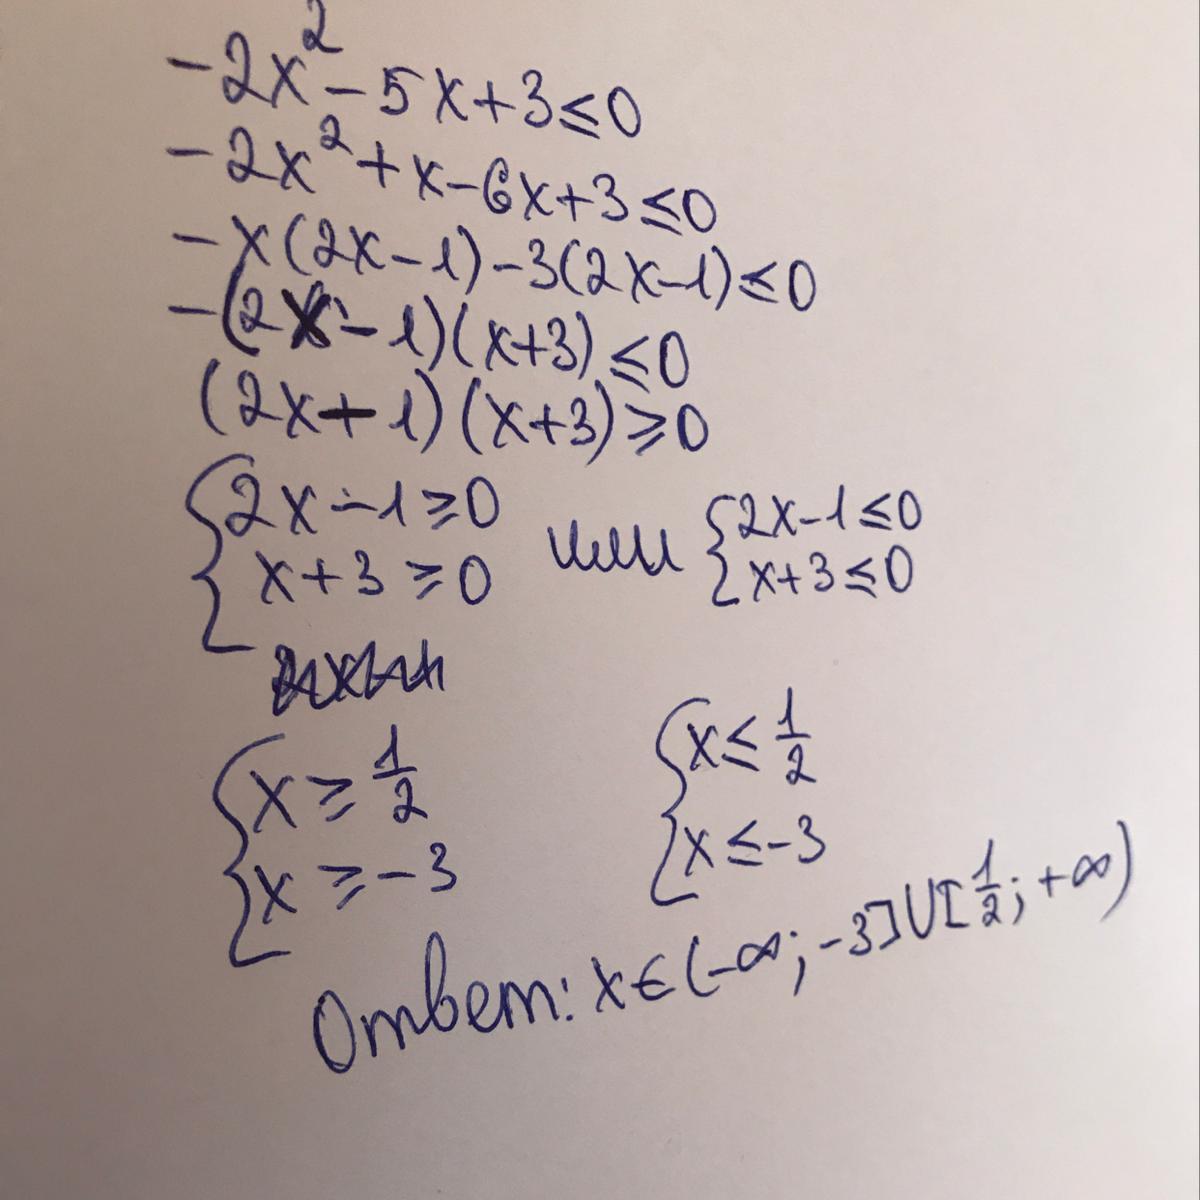 -2x² - 5x + 3 ≤ 0
-2x² + x - 6x + 3 ≤ 0
-x(2x - 1) - 3(2x - 1) ≤ 0
-(2x - 1)(x + 3) ≤ 0
(2x + 1)(x + 3) ≥ 0
{2x - 1 ≥ 0 или {2x - 1 ≤ 0
x + 3 ≥ 0 x + 3 ≤ 0
{x ≥ 1/2 {x ≤ 1/2
x ≥ -3 x ≤ -3
Ответ: x ∈ (-∞; -3] ∪ [1/2; +∞)